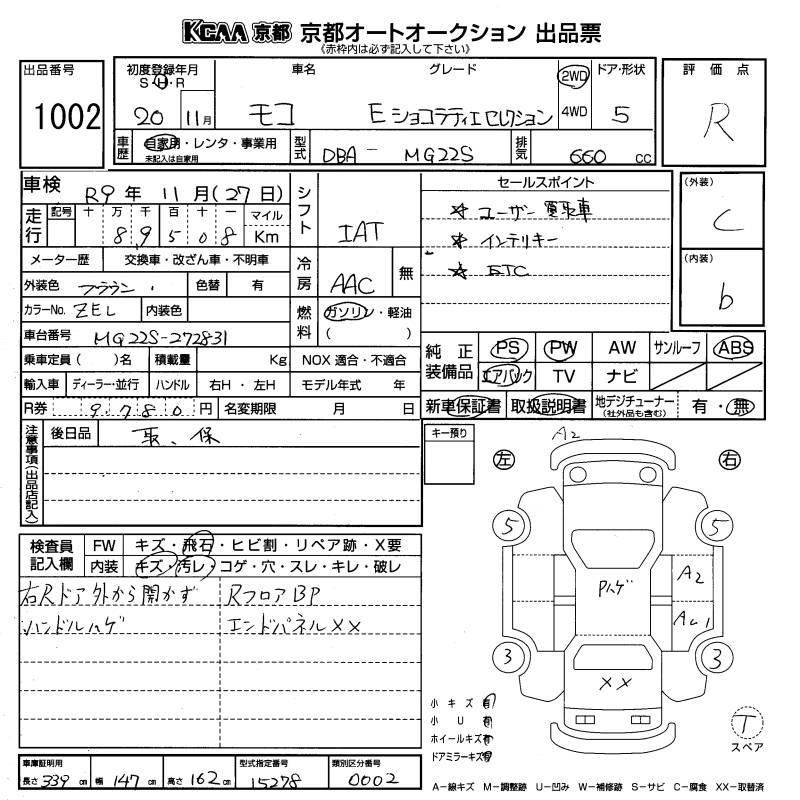 KCAA 京都 京都オートオークション 出品票
《赤枠内は必ず記入して下さい》
出品番号 1002
初度登録年月 S・H・R 20 11月
車名 モコ
グレード E ショコラティエセレクション
2WD 4WD
ドア・形状 5
評価点 R
車歴 自家用・レンタ・事業用 未記入は自家用
型式 DBA - MG22S
排気 660 cc
車検 R9 年 11 月(27日)
シフト IAT
セールスポイント
☆ ユーザー買取車
☆ インテリキー
☆ ETC
(外装) C
(内装) b
走行 記号 十 万 千 百 十 一 マイル Km
8 9 5 0 8
メーター歴 交換車・改ざん車・不明車
冷房 AAC 無
外装色 ブラウン 色替 有
カラーNo. ZEL 内装色
燃料 ガソリン・軽油 ( )
車台番号 MG22S-272831
乗車定員( )名 積載量 Kg NOX 適合・不適合
輸入車 ディーラー・並行 ハンドル 右H・左H モデル年式 年
R券 9780 円 名変期限 月 日
純正装備品 PS PW AW サンルーフ ABS
エアバック TV ナビ
新車保証書 取扱説明書 地デジチューナー (社外品も含む) 有・無
注意事項(出品店記入) 後日品 取、保
キー預り
A2
左 右
5 5
Pハゲ
A2
AU1
3 3
XX
検査員記入欄 FW キズ・飛石・ヒビ割・リペア跡・X要
内装 キズ・汚レ・コゲ・穴・スレ・キレ・破レ
右Rドア外から開かず RフロアBP
ハンドルハゲ エンドパネルXX
小キズ 有
小U 有
ホイールキズ 有
ドアミラーキズ 有
T
スペア
車庫証明用 長さ 339 cm 幅 147 cm 高さ 162 cm
型式指定番号 15278
類別区分番号 0002
A－線キズ M－調整跡 U－凹み W－補修跡 S－サビ C－腐食 XX－取替済